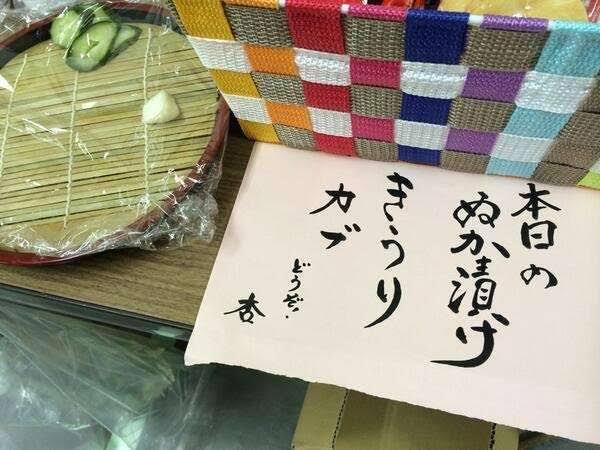 本日の
ぬか漬け
きうり
カブ
どうぞ!
杏